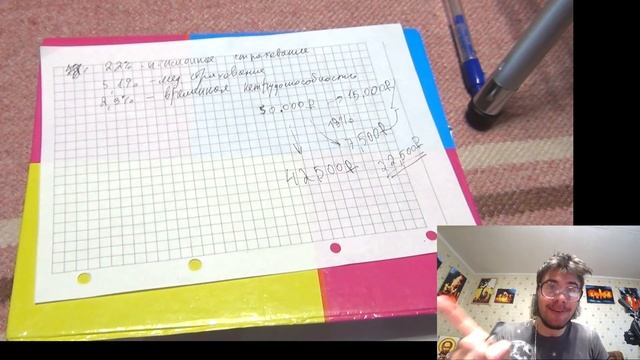 22% пенсионное страхование
5,1% - мед страхование
2,9% - временной нетрудоспособности
50.000₽ → 15.000₽
13%
7,500₽
42,500₽ 22,500₽